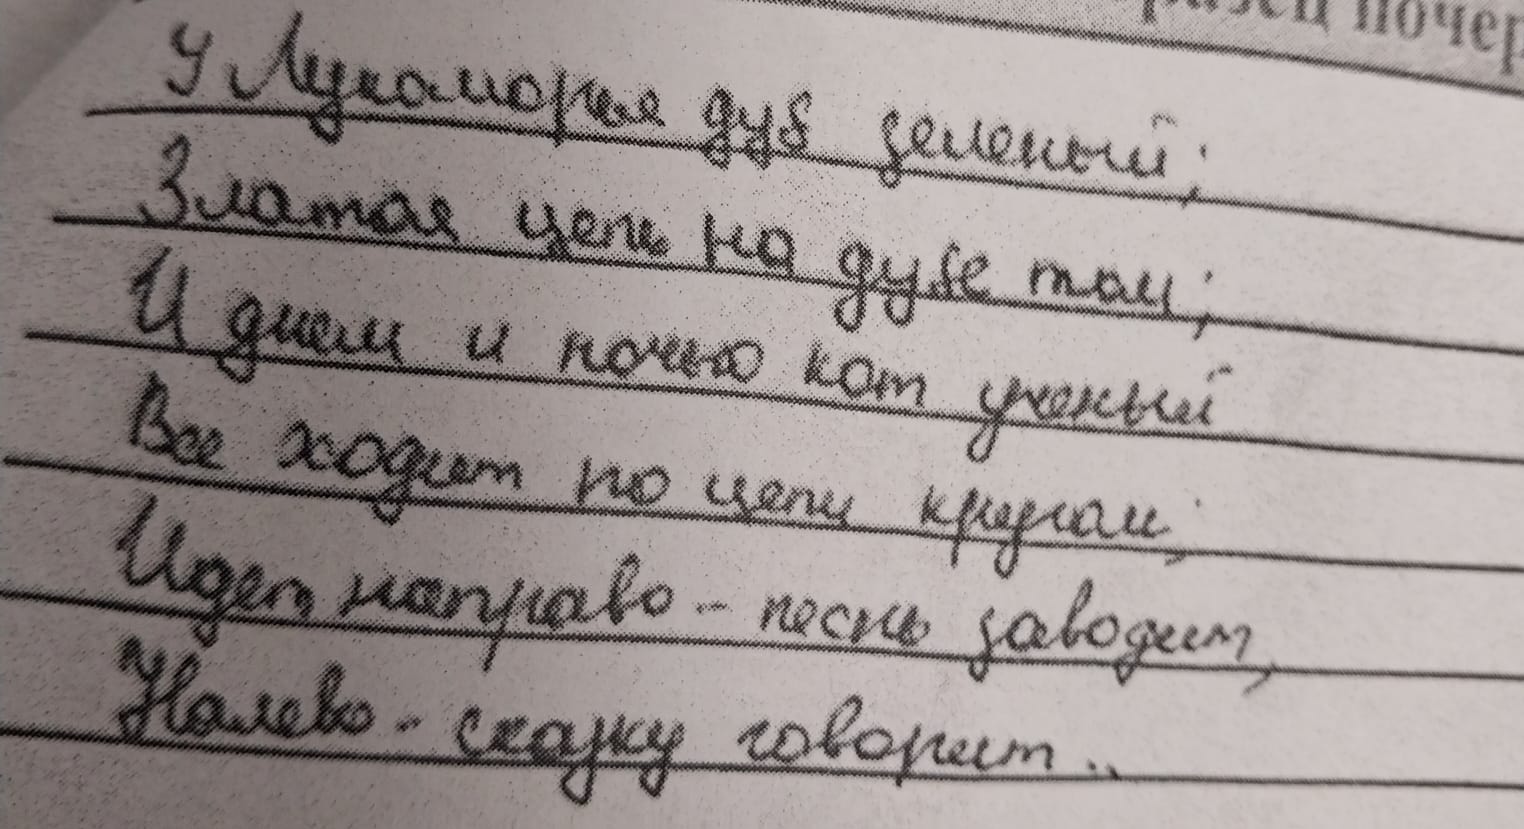 разец почер
У Лукоморья дуб зеленый;
Златая цепь на дубе том;
И днем и ночью кот ученый
Все ходит по цепи кругом;
Идет направо - песнь заводит,
Налево - сказку говорит...